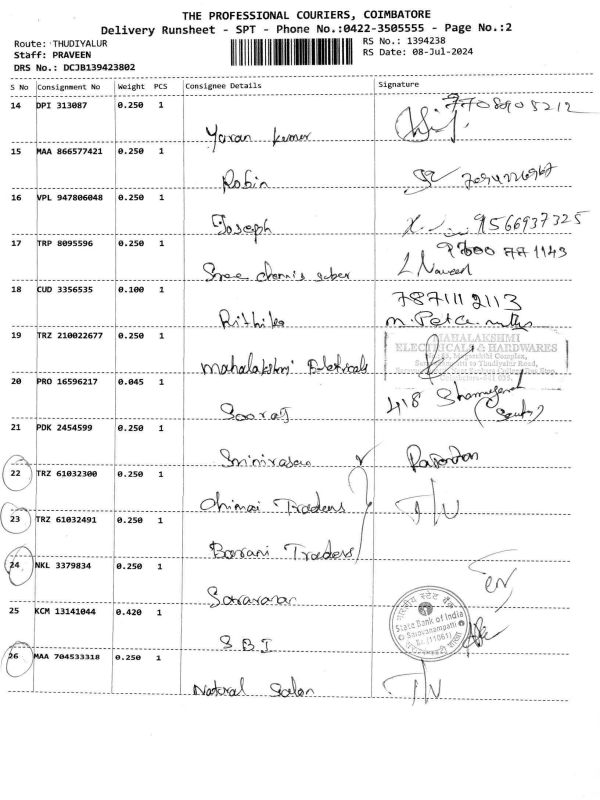 THE PROFESSIONAL COURIERS, COIMBATORE
Delivery Runsheet - SPT - Phone No.:0422-3505555 - Page No.:2
Route: THUDIYALUR
RS No.: 1394238
Staff: PRAVEEN
RS Date: 08-Jul-2024
DRS No.: DCJB139423802
S No Consignment No Weight PCS Consignee Details Signature
14 DPI 313087 0.250 1
7708908212
15 MAA 866577421 0.250 1
Robin
16 VPL 947806048 0.250 1
Joseph 9566937325
17 TRP 8095596 0.250 1
9600 771143
L Naveen
18 CUD 3356535 0.100 1
7871112113
Rithika
19 TRZ 210022677 0.250 1
MAHALAKSHMI
ELECTRICALS & HARDWARES
Mahalakshmi Eletricals
20 PRO 16596217 0.045 1
Sooraj 418
21 PDK 2454599 0.250 1
Srinivasan
22 TRZ 61032300 0.250 1
Traders T/U
23 TRZ 61032491 0.250 1
Barani Traders
24 NKL 3379834 0.250 1
Saravanan
25 KCM 13141044 0.420 1
भारतीय स्टेट बैंक
State Bank of India
Saravanampatti
(11061)
SBI
26 MAA 704533318 0.250 1
Natural Salon T/U